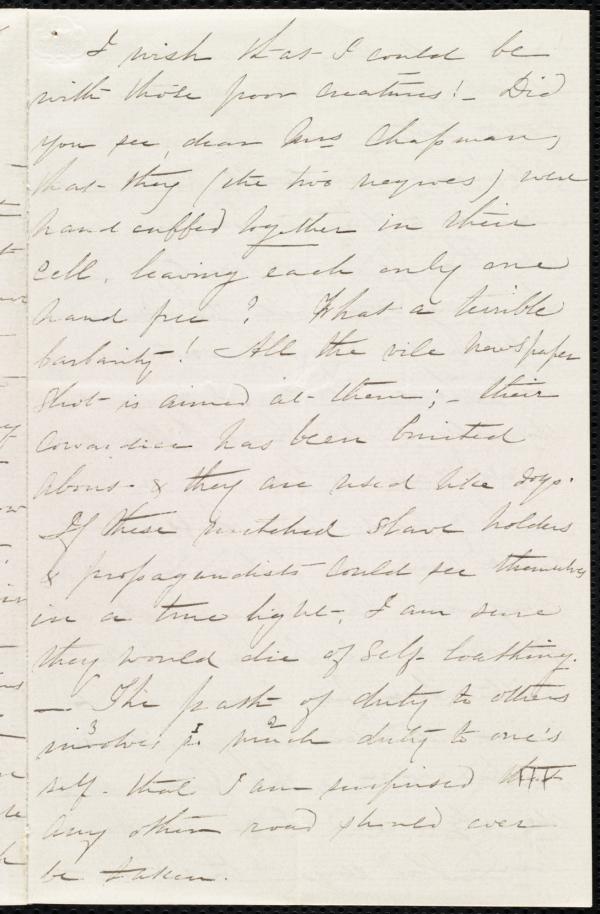 I wish that I could be
with those poor creatures! – Did
you see, dear Mrs Chapman,
that they (the two negroes) were
handcuffed together in their
cell, leaving each only one
hand free? What a terrible
barbarity! All the vile newspaper
shot is aimed at them; – their
cowardice has been bruited
about & they are used like dogs.
If these wretched slave holders
& propagandists could see themselves
in a true light, I am sure
they would die of self-loathing.
— The path of duty to others
3 1 2
involves so much duty to one's
self that I am surprised that
any other road should ever
be taken.